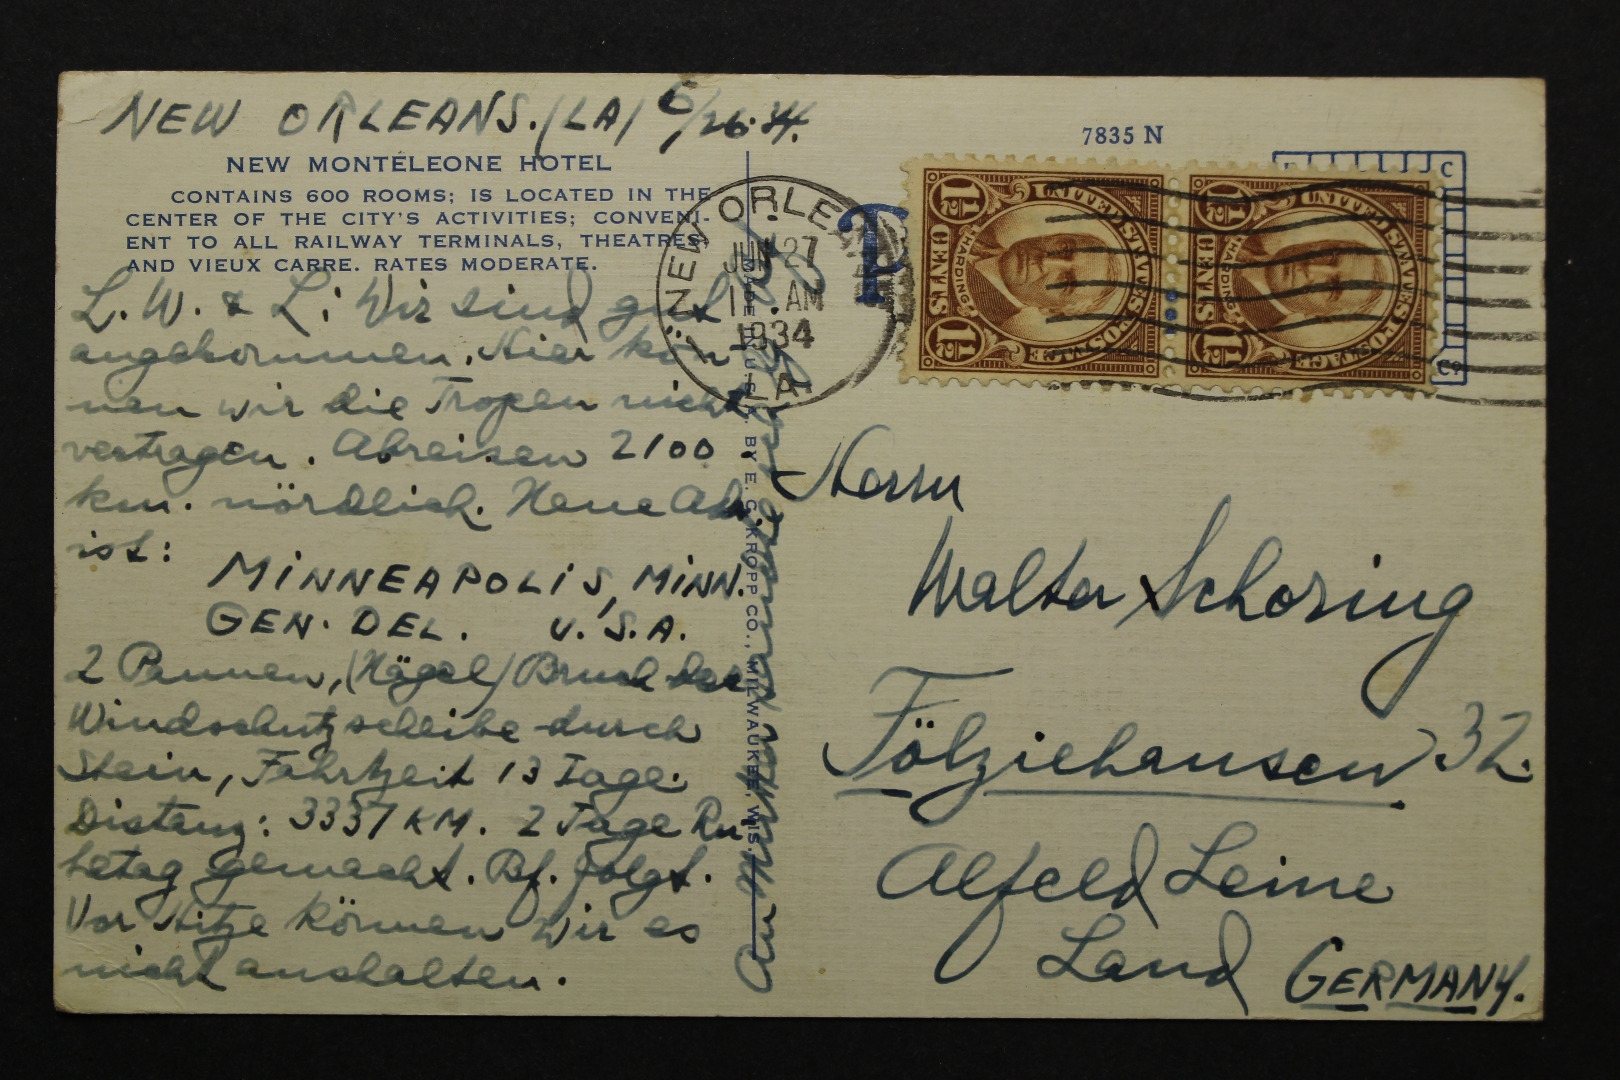 NEW ORLEANS. (LA) 6/26.34.
NEW MONTELEONE HOTEL
CONTAINS 600 ROOMS; IS LOCATED IN THE
CENTER OF THE CITY'S ACTIVITIES; CONVENI-
ENT TO ALL RAILWAY TERMINALS, THEATRES,
AND VIEUX CARRE. RATES MODERATE.
L. W. & L.: Wir sind gut
angekommen. Hier kön
nen wir die Tropen nicht
vertragen. Abreisen 2100
km. nördlich. Neue Adr
ist:
MINNEAPOLIS, MINN.
GEN. DEL. U.S.A.
2 Pannen, (Nägel) Bruch der
Windschutzscheibe durch
Stein, Fahrtzeit 13 Tage.
Distanz: 3337 KM. 2 Tage Ru
hetag gemacht. Bf. folgt.
Vor Hitze können wir es
nicht aushalten.
MADE IN U.S.A. BY E. C. KROPP CO., MILWAUKEE, WIS.
7835 N
NEW ORLEANS
JUN 27
AM
1934
LA.
T
UNITED STATES POSTAGE
HARDING
1½ CENTS 1½
UNITED STATES POSTAGE
HARDING
1½ CENTS 1½
Herrn
Walter Schoring
Fölziehausen 32.
Alfeld Leine
Land GERMANY.